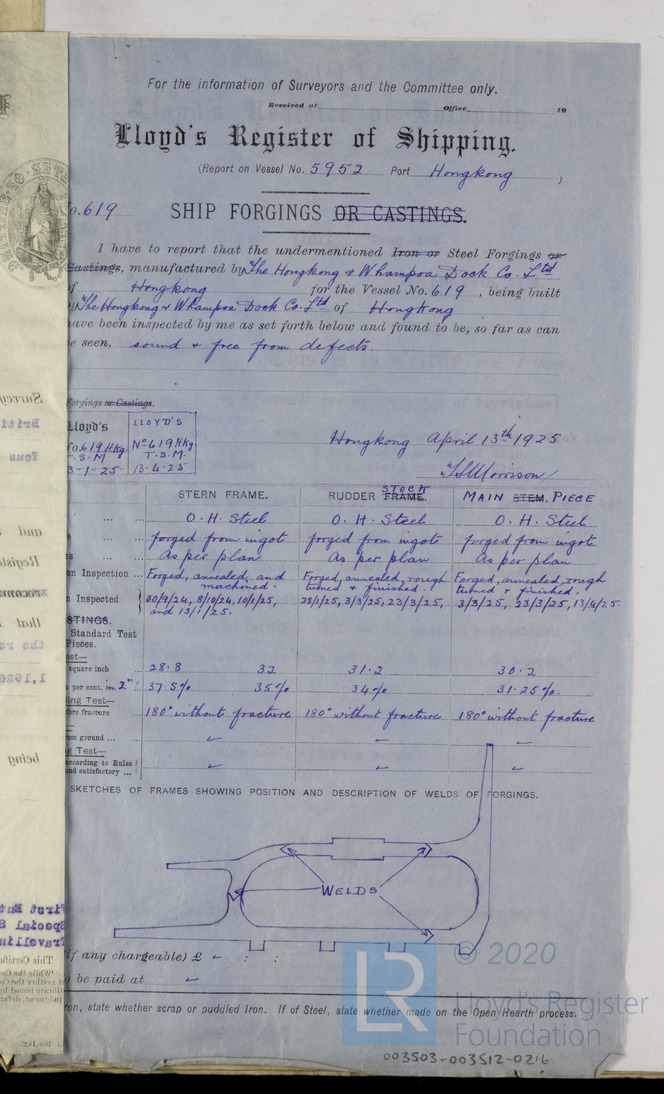 For the information of Surveyors and the Committee only.
Received at Office 19
Lloyd's Register of Shipping.
(Report on Vessel No. 5952 Port Hongkong )
o. 619 SHIP FORGINGS OR CASTINGS.
I have to report that the undermentioned Iron or Steel Forgings or
Castings, manufactured by The Hongkong & Whampoa Dock Co. Ltd
f Hongkong for the Vessel No. 619, being built
The Hongkong & Whampoa Dock Co. Ltd of Hongkong
ave been inspected by me as set forth below and found to be, so far as can
e seen, sound & free from defects.
Forgings or Castings.
Lloyd's LLOYD'S
o. 619 Hkg. No 619 HKg
T.S.M T.S.M.
3-1-25 13-4-25
Hongkong April 13th 1925
STERN FRAME. RUDDER FRAME. STOCK MAIN STEM. PIECE
O.H. Steel O.H. Steel O.H. Steel
forged from ingot forged from ingot forged from ingot
As per plan As per plan As per plan
on Inspection ... Forged, annealed, and machined. Forged, annealed, rough turned & finished. Forged, annealed, rough turned & finished.
n Inspected 30/9/24, 8/10/24, 10/1/25, and 13/1/25. 28/1/25, 3/3/25, 23/3/25, 3/3/25, 23/3/25, 13/4/25.
STINGS.
Standard Test
Pieces.
est—
square inch 28.8 32 31.2 30.2
per cent. in 2" 37.5% 35% 34% 31.25%.
ing Test—
fore fracture 180° without fracture 180° without fracture 180° without fracture
om ground
g Test—
according to Rules
and satisfactory
SKETCHES OF FRAMES SHOWING POSITION AND DESCRIPTION OF WELDS OF FORGINGS.
WELDS
if any chargeable) £
be paid at
ron, state whether scrap or puddled Iron. If of Steel, state whether made on the Open Hearth process.
© 2020
LR Lloyd's Register
Foundation
003503-003512-0216